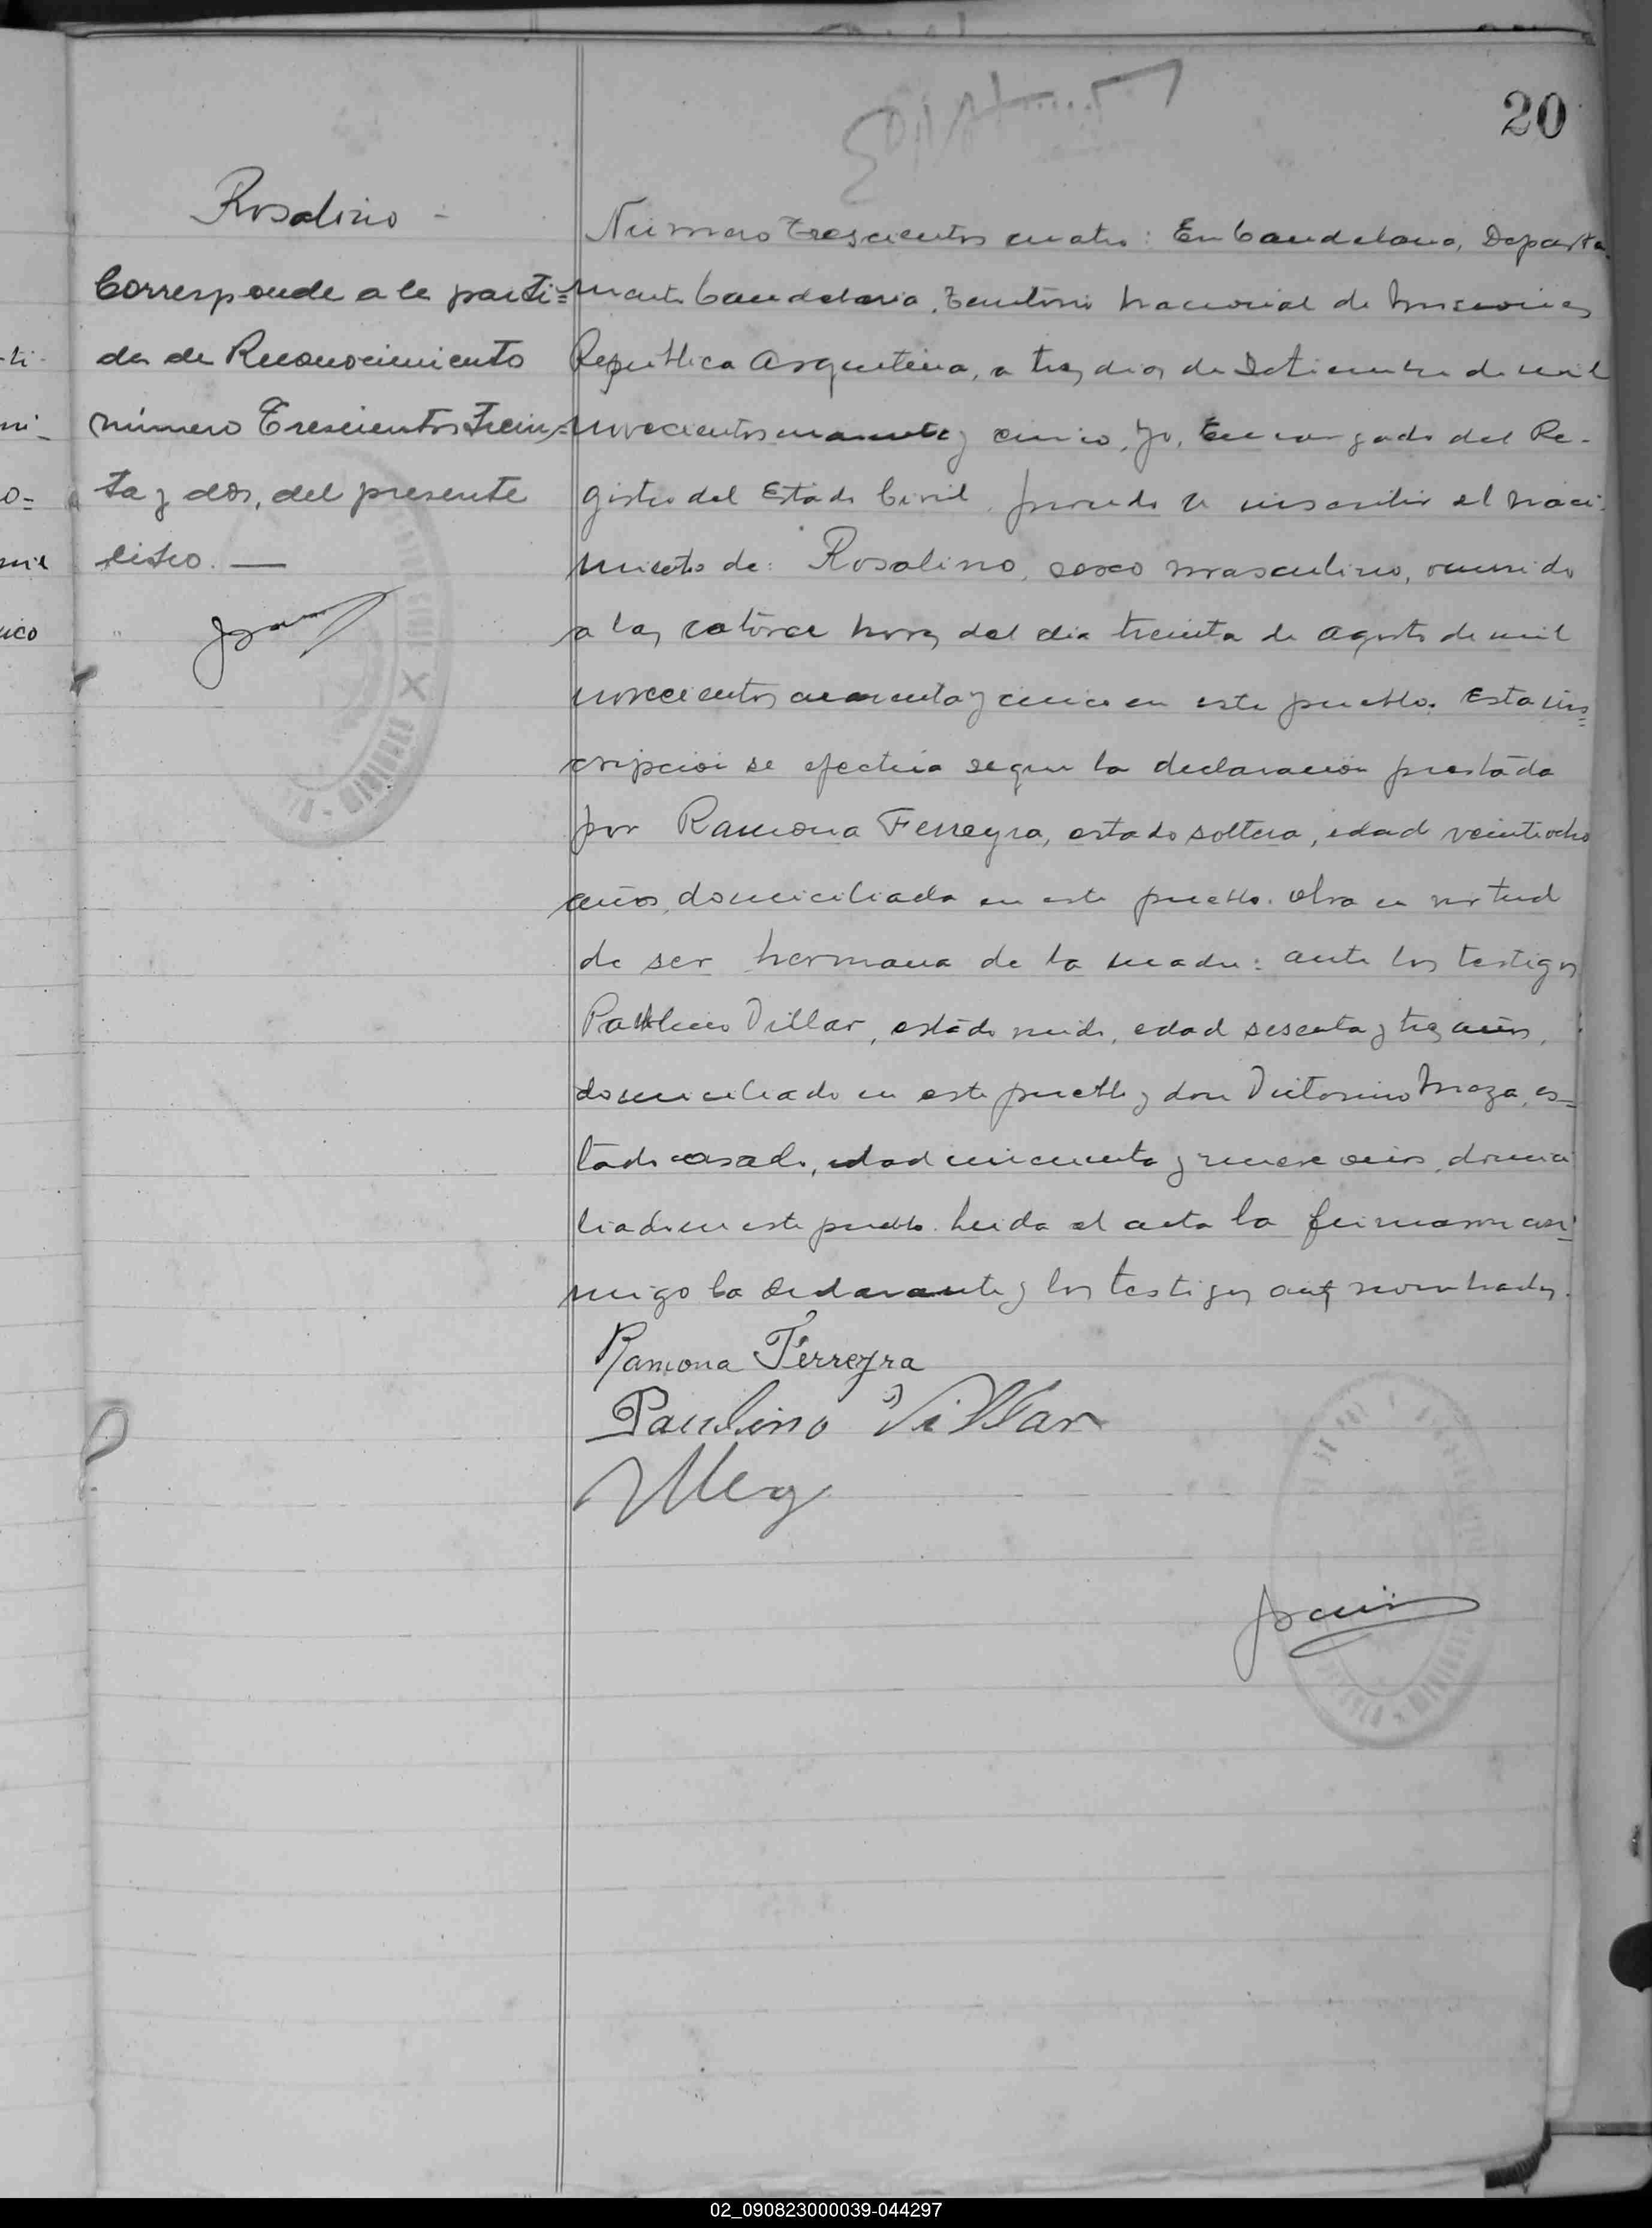 20
Rosalino -
Corresponde a la parti=
da de Reconocimiento
número Trescientos Trein=
ta y dos, del presente
listro. —
Número Trescientos cuatro: En Candelaria, Departa
mento Candelaria, Territorio Nacional de Misiones
República Argentina, a tres dias de Setiembre de mil
novecientos cuarenta y cinco, Yo, Encargado del Re-
gistro del Estado Civil, procedo a inscribir el naci-
miento de: Rosalino, sexo masculino, ocurrido
a las catorce horas del dia treinta de Agosto de mil
novecientos cuarenta y cinco en este pueblo. Esta ins=
cripción se efectúa segun la declaración prestada
por Ramona Ferreyra, estado soltera, edad veintiocho
años, domiciliada en este pueblo. obra en virtud
de ser hermana de la madre: ante los testigos
Paulino Villar, estado viudo, edad sesenta y tres años,
domiciliado en este pueblo y don Victorino Meza, es=
tado casado, edad cincuenta y nueve años, domici
liado en este pueblo. Leida el acta la firmaron con=
migo la declarante y los testigos antes nombrados.
Ramona Ferreyra
Paulino Villar
VMeza
02_090823000039-044297